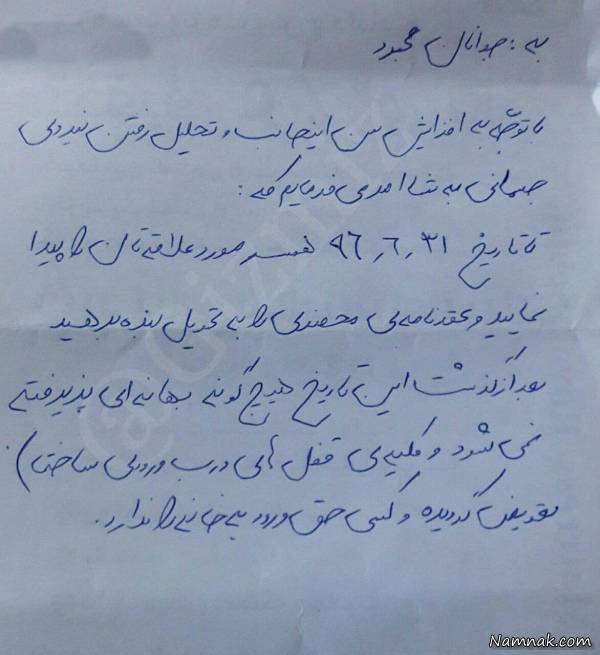 به: جوانان مجرد
با توجه به افزایش سن اینجانب و تحلیل رفتن نیروی
جسمانی به شما امر می فرمایم که:
تا تاریخ ۹۶٫۶٫۳۱ همسر مورد علاقه تان را پیدا
نمایید و عقدنامه ی محضری را به تحویل بنده بدهید
بعد از گذشت این تاریخ هیچ گونه بهانه ای پذیرفته
نمی شود و کلیه ی قفل های درب ورودی ساختمان
تعویض گردیده و کسی حق ورود به خانه را ندارد.
@Gizmiz
Namnak.com